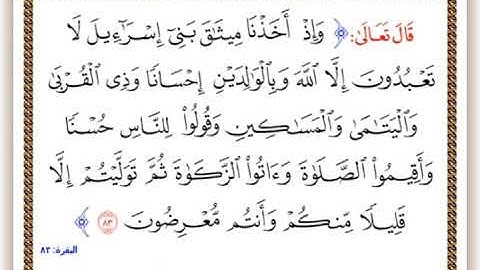 قَالَ تَعَالَىٰ: ﴿ وَإِذۡ أَخَذۡنَا مِيثَٰقَ بَنِيٓ إِسۡرَٰٓءِيلَ لَا
تَعۡبُدُونَ إِلَّا ٱللَّهَ وَبِٱلۡوَٰلِدَيۡنِ إِحۡسَانٗا وَذِي ٱلۡقُرۡبَىٰ
وَٱلۡيَتَٰمَىٰ وَٱلۡمَسَٰكِينِ وَقُولُواْ لِلنَّاسِ حُسۡنٗا
وَأَقِيمُواْ ٱلصَّلَوٰةَ وَءَاتُواْ ٱلزَّكَوٰةَ ثُمَّ تَوَلَّيۡتُمۡ إِلَّا
قَلِيلٗا مِّنكُمۡ وَأَنتُم مُّعۡرِضُونَ ٨٣ ﴾
البقرة: ٨٣